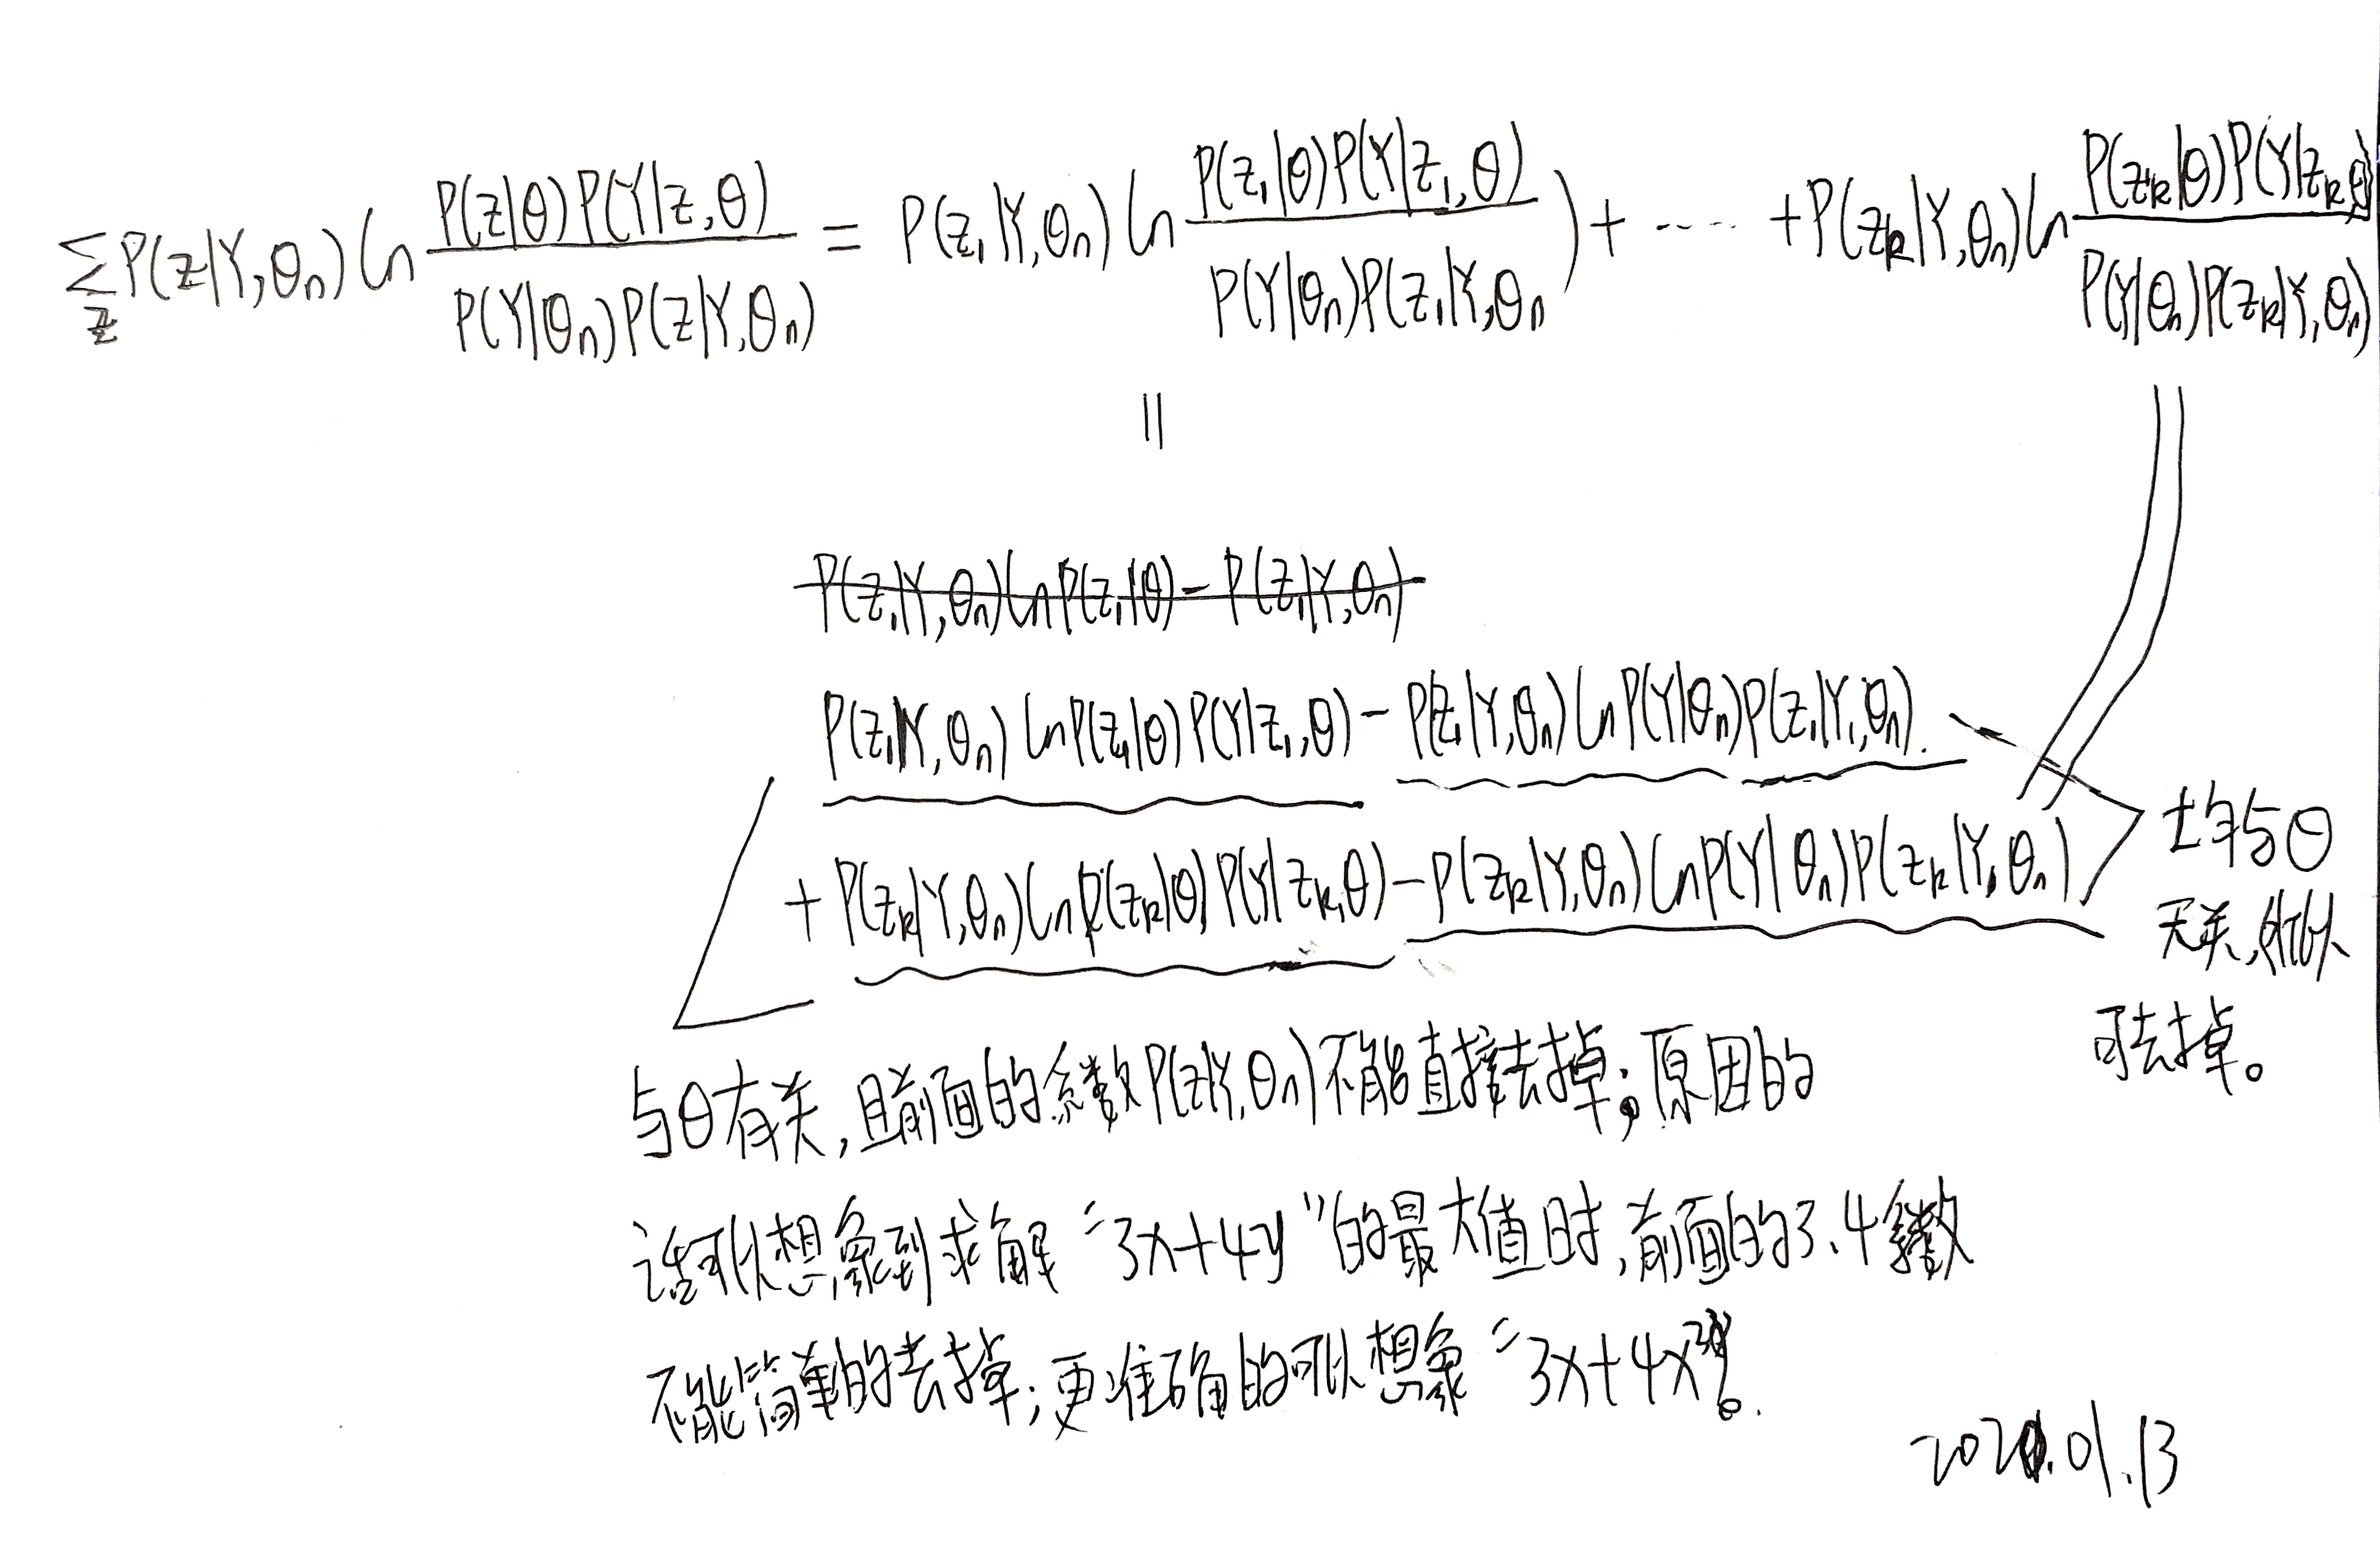 ∑_z P(z|Y,θn) ln P(z|θ)P(Y|z,θ) / P(Y|θn)P(z|Y,θn) = P(z₁|Y,θn) ln P(z₁|θ)P(Y|z₁,θ) / P(Y|θn)P(z₁|Y,θn ) + ····· + P(zk|Y,θn) ln P(zk|θ)P(Y|zk,θ) / P(Y|θn)P(zk|Y,θn)
=
P(z₁|Y,θn) ln P(z₁|θ) − P(z₁|Y,θn)
P(z₁|Y,θn) ln P(z₁|θ) P(Y|z₁,θ) − P(z₁|Y,θn) ln P(Y|θn) P(z₁|Y,θn)
+ P(zk|Y,θn) ln P(zk|θ) P(Y|zk,θ) − P(zk|Y,θn) ln P(Y|θn) P(zk|Y,θn)
均与θ
无关,所以
可去掉。
与θ有关,且前面的系数P(z|Y,θn)不能直接去掉;原因的
话可以想象到求解“3x+4y”的最大值时,前面的3、4系数
不能简单的去掉;更准确的可以想象“3x+4x²”。
2020.01.13